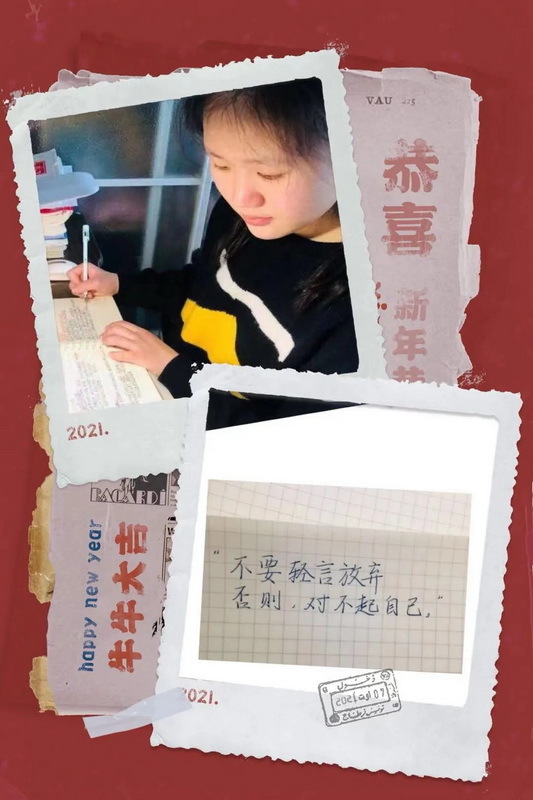 VAU 225
恭喜
新年
2021.
BAGAEDI
happy new year
牛牛大吉
“不要轻言放弃
否则，对不起自己。”
2021.